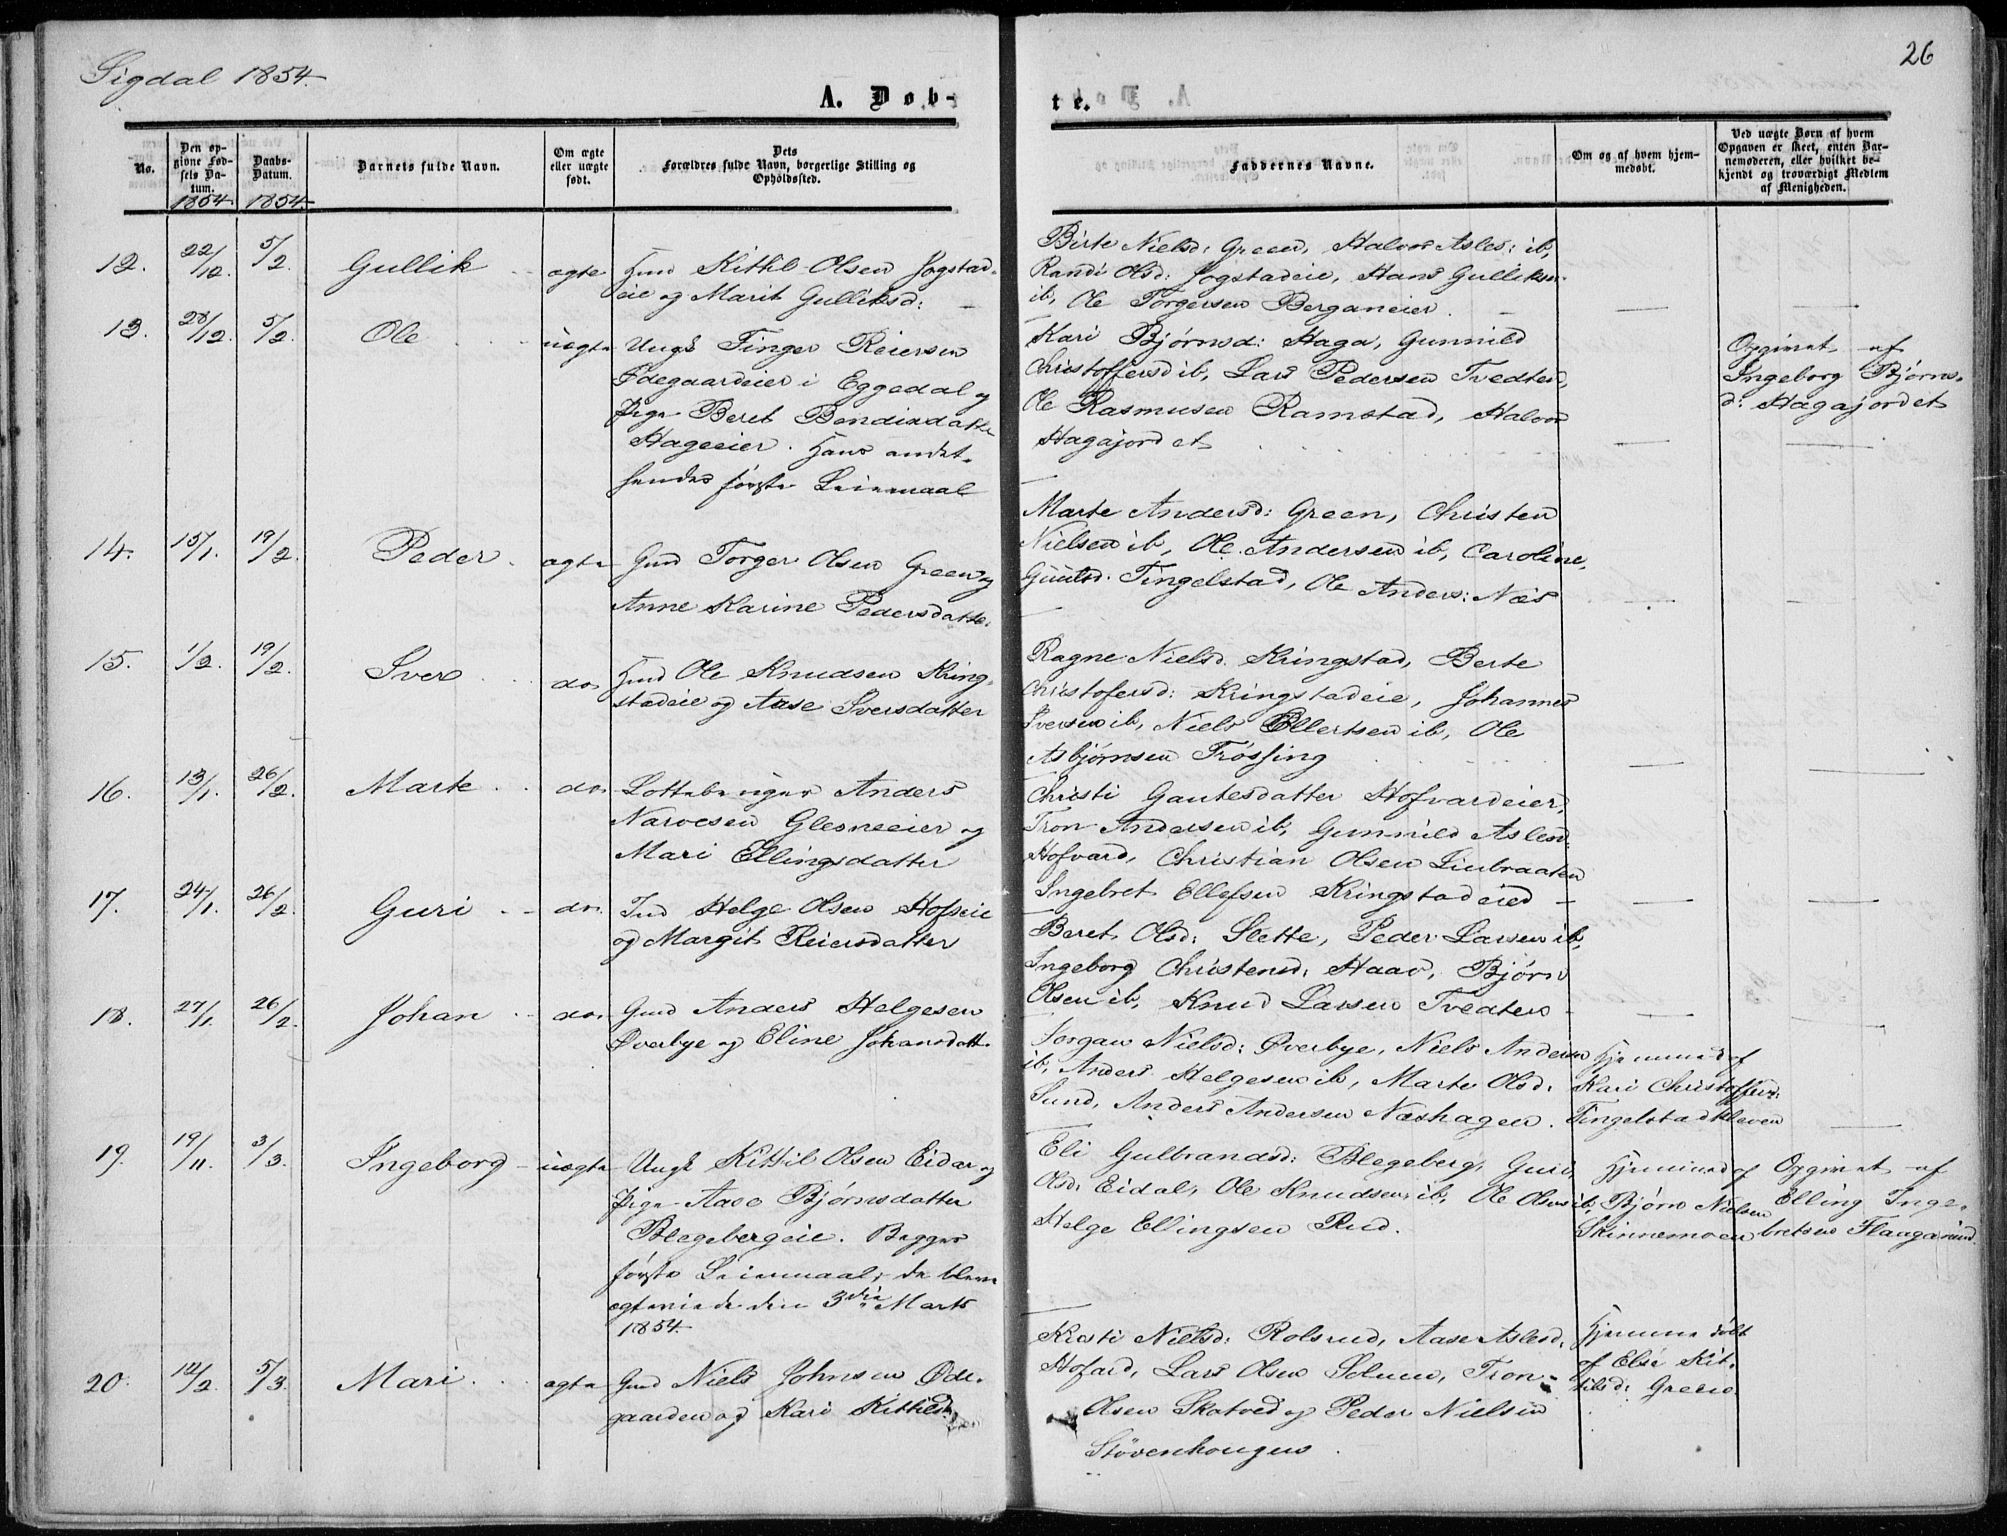 Sigdal 1854.
A. Døb-
No.
Den op-
givne Fød-
sels Da-
tum.
1854
Daabs-
Datum.
1854
Barnets fulde Navn.
Om ægte
eller uægte
født.
Dets
Forældres fulde Navn, borgerlige Stilling og
Opholdssted.
12. 22/12. 5/2. Gullik ægte Hmd Kittil Olsen Jogstad-
eie og Marit Gulliksd:
13. 28/12. 5/2. Ole uægte Ungk Finger Reiersen
Ødegaardeier i Eggedal og
Pige Beret Bendixdatter
Hageeier. Hans andet.
hendes første Leiermaal
14. 15/1. 19/2. Peder ægte Gmd Torger Olsen Green og
Anne Karine Pedersdatter.
15. 1/2. 19/2. Iver do. Hmd Ole Knudsen Kring-
stadeie og Aase Iversdatter
16. 13/1. 26/2. Marte do. Anders
Narvesen Glesneeier og
Mari Ellingsdatter
17. 24/1. 26/2. Guri do. Ind Helge Olsen Hofseie
og Margit Reiersdatter
18. 27/1. 26/2. Johan do. Gmd Anders Helgesen
Øverbye og Eline Johansdatt.
19. 19/11. 3/3. Ingeborg uægte Ungk Kittil Olsen Eidal og
Pige Aase Bjørnsdatter
Blegebergeie. Begges
første Leiermaal, de bleve
ægteviede den 3die Marts
1854.
20. 12/2. 5/3. Mari ægte Gmd Niels Johnsen Øde-
gaarden og Kari Kittilsd.
26
te.
Faddernes Navne.
Om og af hvem hjem-
medøbt.
Ved uægte Børn af hvem
Opgaven er skeet, enten Bar-
nemoderen, eller hvilket be-
kjendt og troværdigt Medlem
af Menigheden.
Birte Nielsd: Green, Halvor Asles: ib,
Randi Olsd: Jogstadeie, Hans Gulliksen
ib, Ole Torgersen Berganeier.
Kari Bjørnsd: Haga, Gunnild
Christoffersd ib, Lars Pedersen Tvedten,
Ole Rasmusen Ramstad, Halvor
Hagajordet
Opgivet af
Ingeborg Bjørns-
d: Hagajordet
Marte Andersd: Green, Christen
Nielsen ib, Ole Andersen ib, Caroline
Tingelstad, Ole Anders: Næs
Ragne Nielsd. Kringstad, Berte
Christofersd: Kringstadeie, Johannes
Iversen ib, Niels Ellertsen ib, Ole
Asbjørnsen Frøssing
Christi Gautesdatter Hofvardeier,
Tron Andersen ib, Gunnild Aslesd:
Hofvard, Christian Olsen Liubraaten
Ingebret Ellefsen Kringstadeied
Beret Olsd: Slette, Peder Larsen ib,
Ingeborg Christensd. Haav, Bjørn
Olsen ib, Knud Larsen Tvedten
Jorgan Nielsd: Øverbye, Niels Andersen
ib, Anders Helgesen ib, Marte Olsd:
Lund, Anders Andersen Næshagen.
Hjemmed af
Kari Christoffersd:
Tingelstadkleven
Eli Gulbrandsd: Blegeberg, Guri
Olsd: Eidal, Ole Knudsen ib, Ole Olsen ib,
Helge Ellingsen Rud.
Hjemmed af
Bjørn Nielsen
Skinnemoen
Opgivet af
Elling Inge-
bretsen Flaagarud.
Kirsti Nielsd: Rolsrud, Aase Aslesd.
Hofard, Lars Olsen Solum, Tron
Olsen Skatved og Peder Nielsen
Støvenhougen.
Hjemmedøbt
af Else Kit-
tilsd: Green